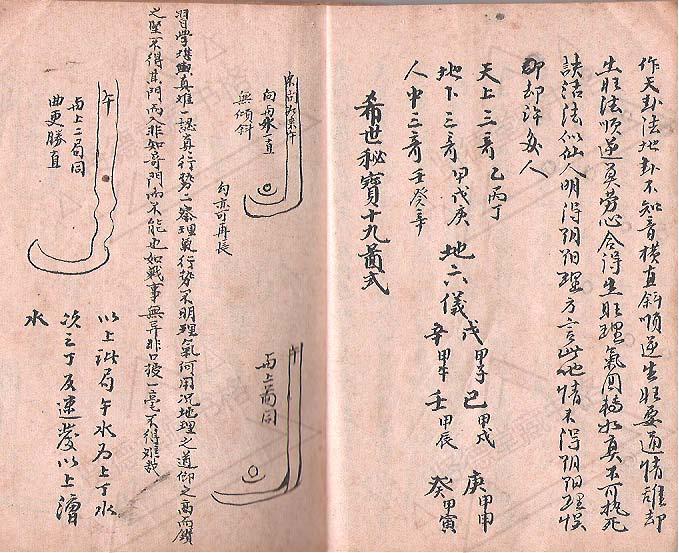 作天卦法地卦不知音橫直斜順逆生旺要通情誰却
生旺法順逆莫勞心合得生旺理氣圓轉如真不可執死
訣活法似仙人明得阴阳理方言此地情未得阴阳理悮
却許多人
天上三奇乙丙丁
地下三奇甲戊庚
人中三奇壬癸辛
地六儀
戊甲子
己甲戌
庚甲申
辛甲午
壬甲辰
癸甲寅
希世秘寶十九圖式
無傾斜
勾亦可再長
午
与上圖同
習学堪輿真难一認真行势二察理氣行势不明理氣何用况地理之道仰之高而鑽
之堅不得其門而入非知奇門而不能也如戰事無異非口授一毫不得难教
午
与上二局同
曲更勝直
以上諸局午水为上丁水
次之丁反速發以上
水